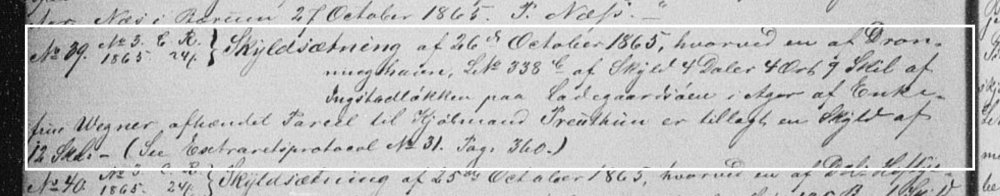 Næs i Bærum 27 October 1865. P. Næss.
No 39. No 3. E. R. } Skyldsætning af 26de October 1865, hvorved en af Dron-
1865. 24/.
ningshavn, L No 338 c af Skyld 4 Daler 4 Ort 9 Skil af
Ingstadløkken paa Ladegaardsøen i Ager af Enke-
frue Wegner afhændet Parcel til Hjølmand Treuthun er tillagt en Skyld af
12 Skil. - (See Extraretsprotocol No 31. Pag. 360.)
No 40. No 3. E. R. } Skyldsætning af 25de October 1865, hvorved en af
1865. 24/.